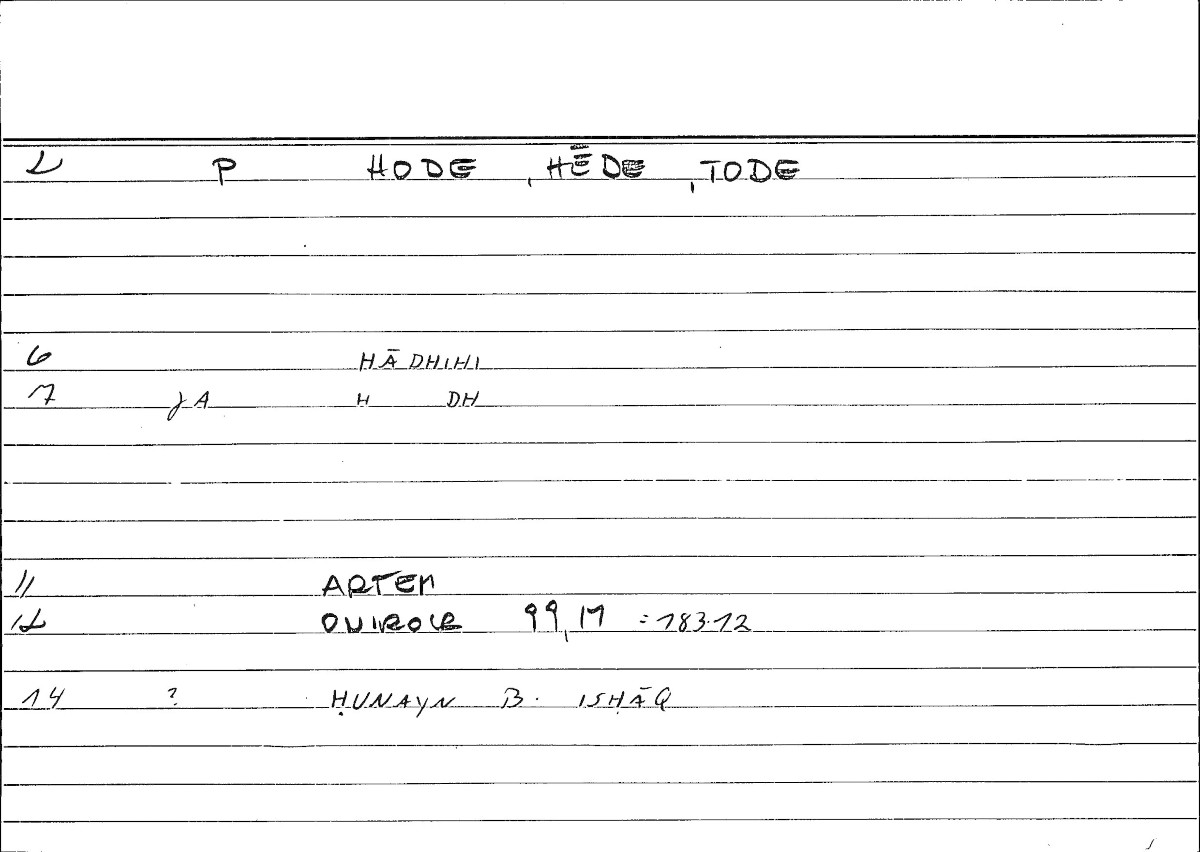 2 P HODE , HĒDE , TODE
6 HĀDHIHI
7 JA H DH
11 ARTEM
12 ONIROCR 99,17 = 183.12
14 ? ḤUNAYN B. ISḤĀQ